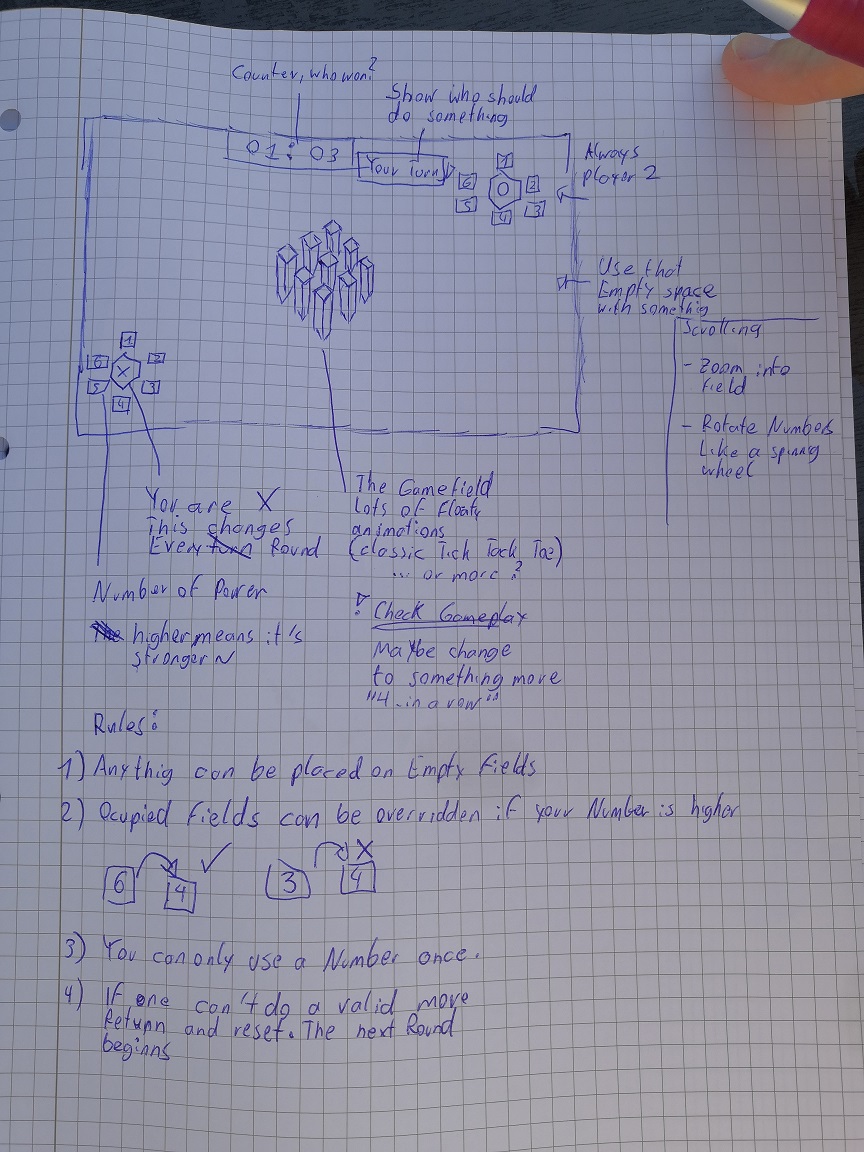 Counter, who won?
Show who should
do something
01 : 03
Your Turn
1
6
O
2
5
4
3
Always
player 2
Use that
Empty space
with somethig
Scrolling
- Zoom into
field
- Rotate Numbers
Like a spinnig
wheel
1
6
X
2
5
4
3
You are X
This changes
Every turn Round
The Gamefield
Lots of Floaty
animations
(classic Tick Tack Toe)
... or more?
Number of Power
The higher means it's
stronger
! Check Gameplay
Maybe change
to something more
"4-in a row"
Rules:
1) Anythig can be placed on Empty Fields
2) Ocupied Fields can be overridden if your Number is higher
6 4 ✓ 3 4 X
3) You can only use a Number once.
4) If one can't do a valid move
Return and reset. The next Round
beginns